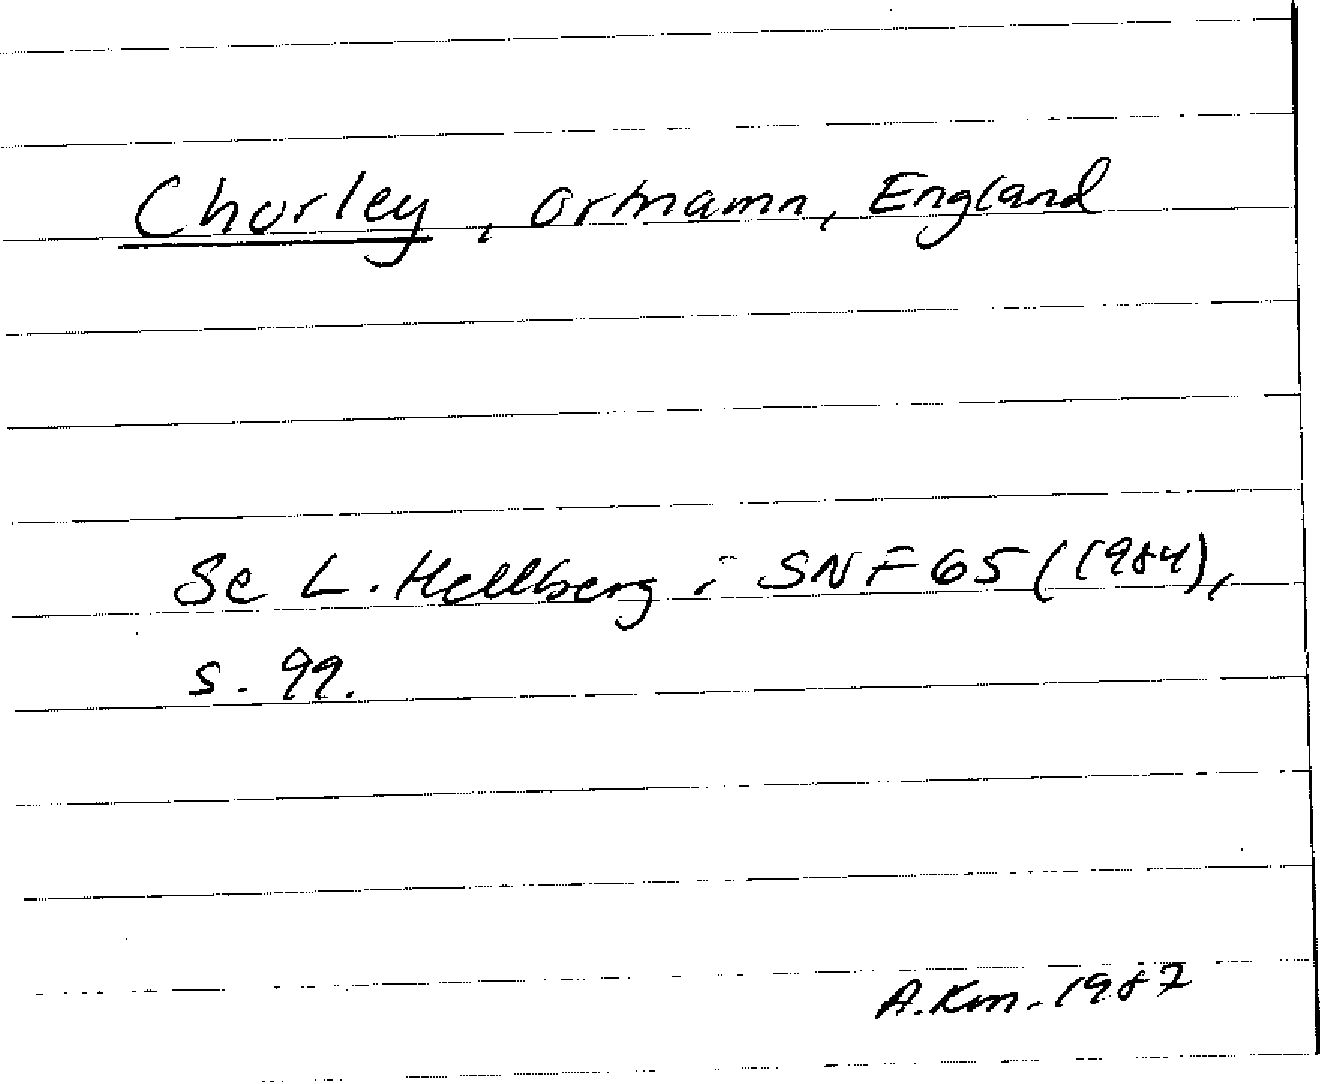 Chorley, ortnamn, England
Se L. Hellberg i SNF 65 (1984),
s. 99.
A.Km. 1987